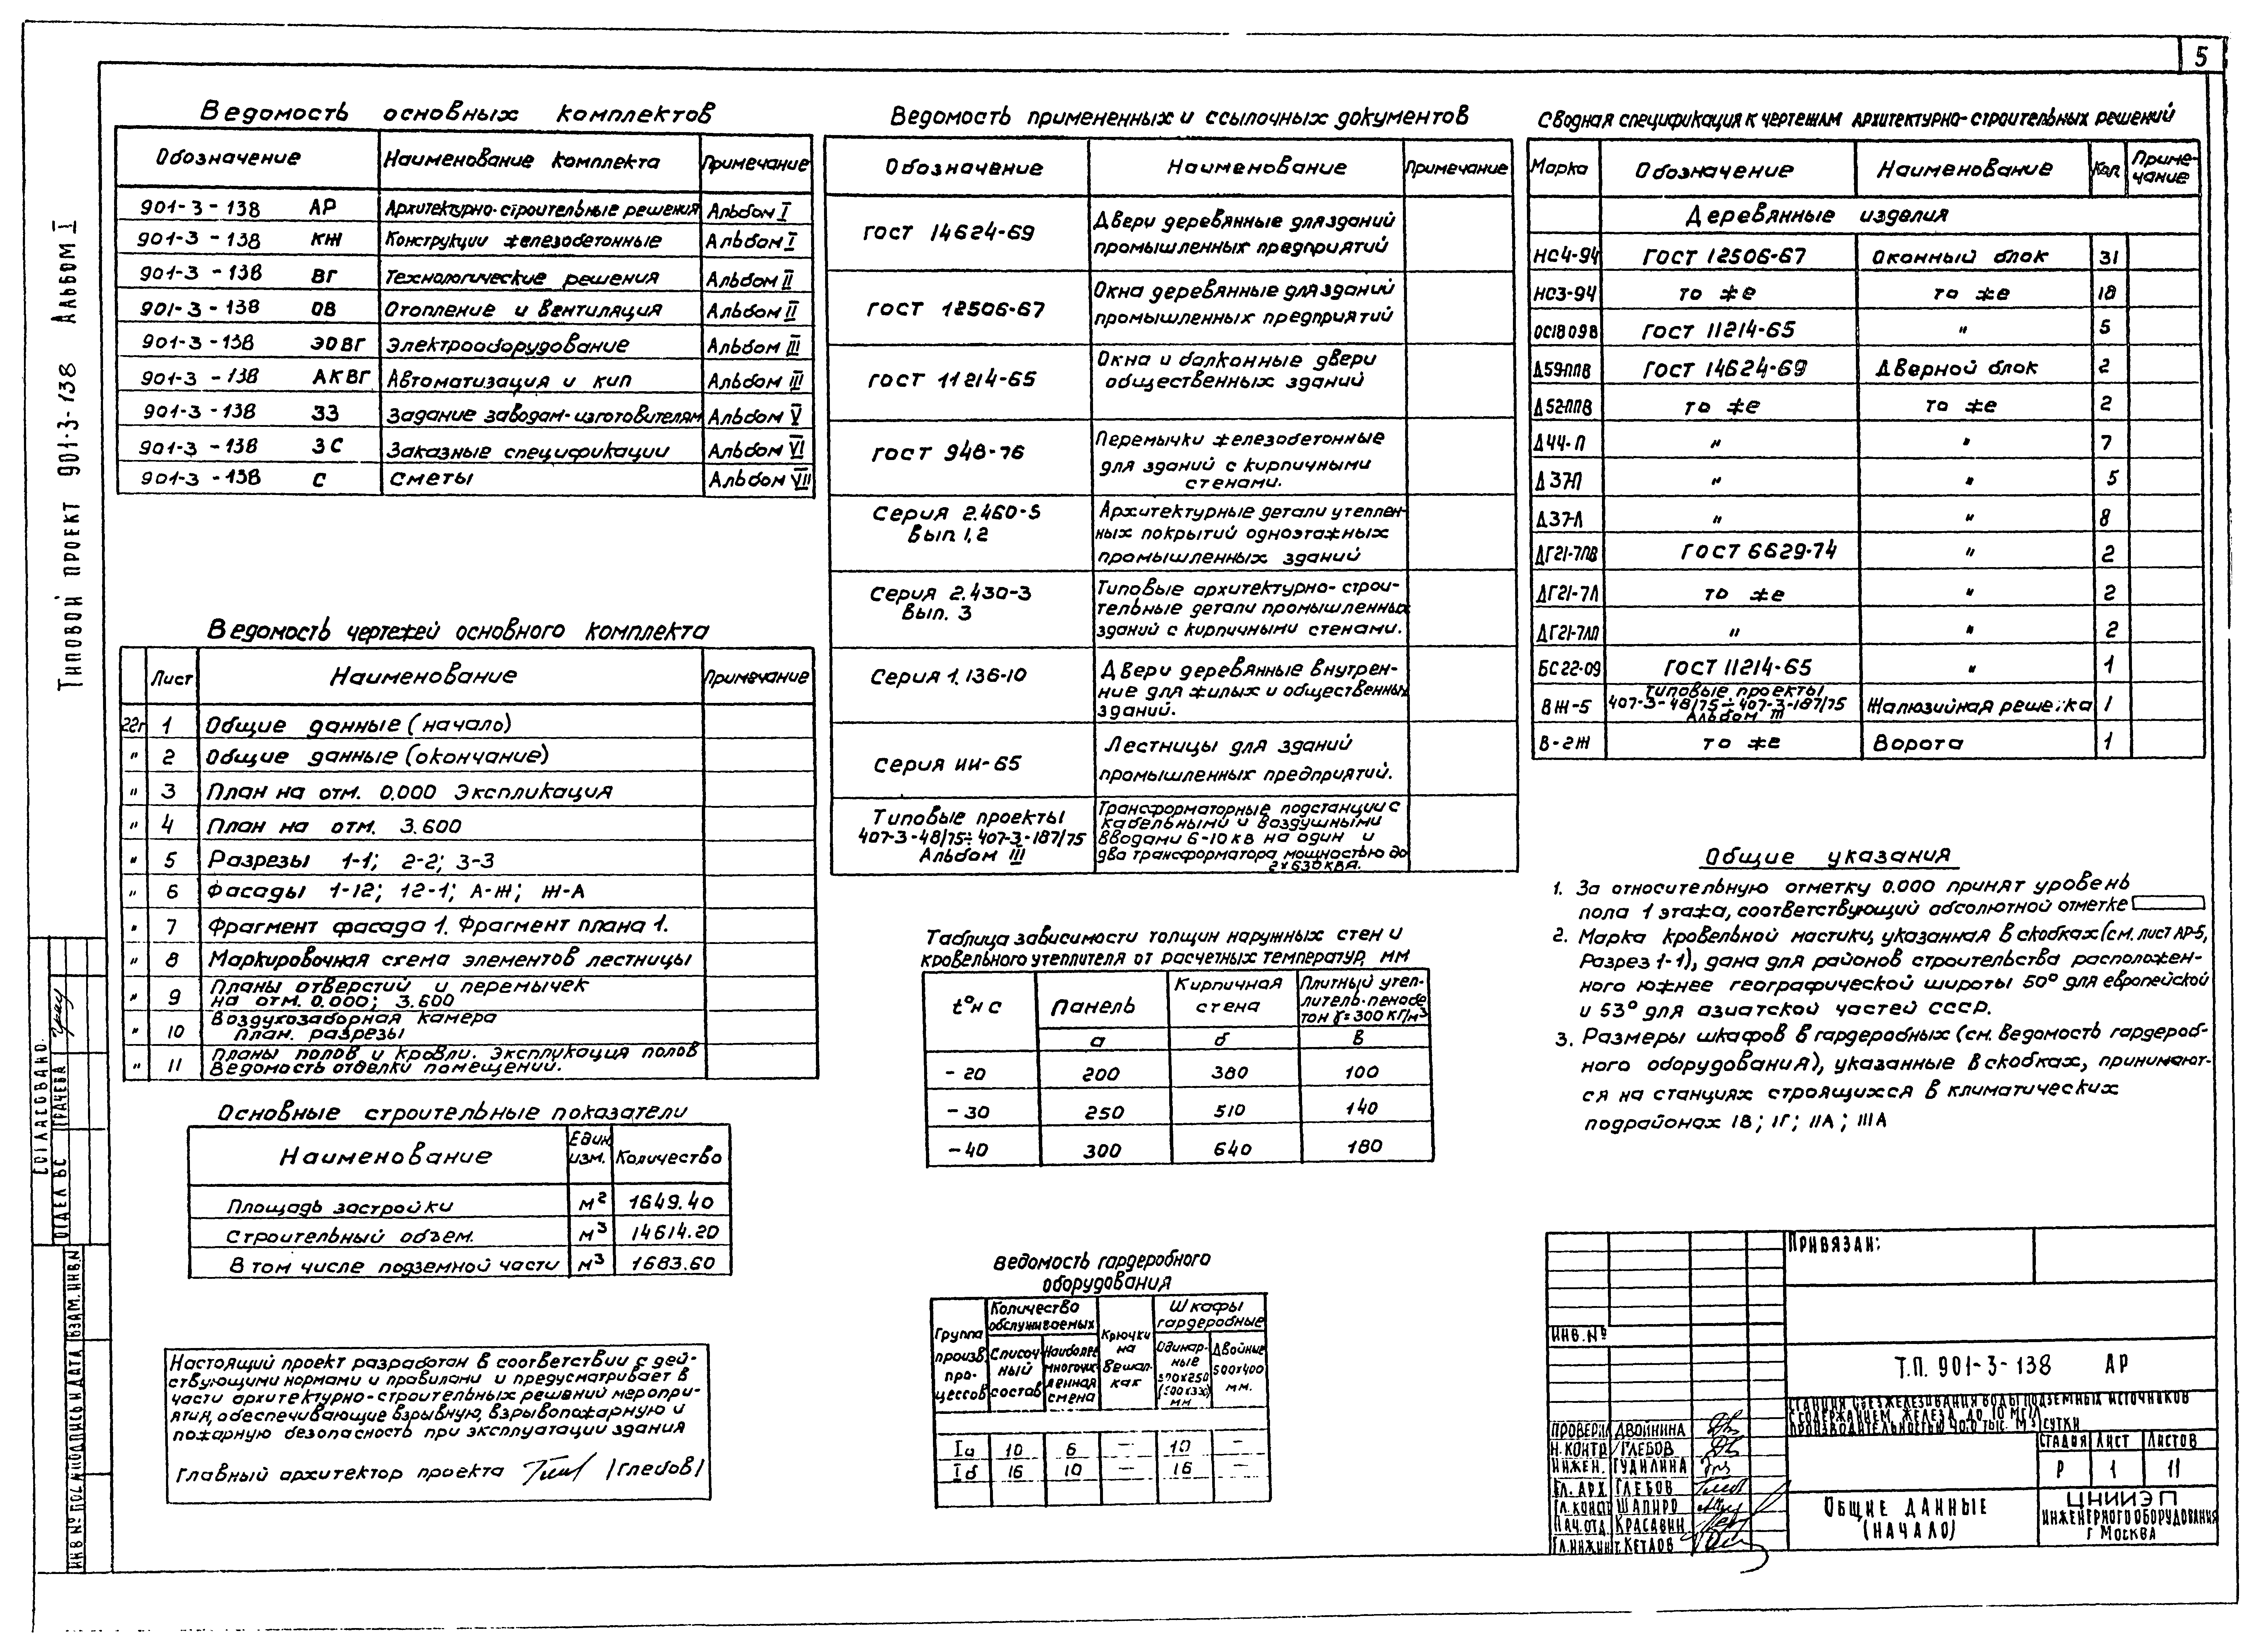 5
Типовой проект 901-3-138 Альбом I
Ведомость основных комплектов
Обозначение Наименование комплекта Примечание
901-3-138 АР Архитектурно-строительные решения Альбом I
901-3-138 КЖ Конструкции железобетонные Альбом I
901-3-138 ВГ Технологические решения Альбом II
901-3-138 ОВ Отопление и вентиляция Альбом II
901-3-138 ЭОВГ Электрооборудование Альбом III
901-3-138 АКВГ Автоматизация и кип Альбом III
901-3-138 ЗЗ Задание заводам-изготовителям Альбом V
901-3-138 ЗС Заказные спецификации Альбом VI
901-3-138 С Сметы Альбом VII
Ведомость чертежей основного комплекта
Лист Наименование Примечание
22г 1 Общие данные (начало)
" 2 Общие данные (окончание)
" 3 План на отм. 0.000 Экспликация
" 4 План на отм. 3.600
" 5 Разрезы 1-1; 2-2; 3-3
" 6 Фасады 1-12; 12-1; А-Ж; Ж-А
" 7 Фрагмент фасада 1. Фрагмент плана 1.
" 8 Маркировочная схема элементов лестницы
" 9 Планы отверстий и перемычек
на отм. 0.000; 3.600
" 10 Воздухозаборная камера
План. разрезы
" 11 Планы полов и кровли. Экспликация полов
Ведомость отделки помещений.
Основные строительные показатели
Наименование Един. изм. Количество
Площадь застройки м² 1649.40
Строительный объем. м³ 14614.20
В том числе подземной части м³ 1683.60
Настоящий проект разработан в соответствии с дей-
ствующими нормами и правилами и предусматривает в
части архитектурно-строительных решений меропри-
ятия, обеспечивающие взрывную, взрывопожарную и
пожарную безопасность при эксплуатации здания
Главный архитектор проекта (Глебов)
Ведомость примененных и ссылочных документов
Обозначение Наименование Примечание
ГОСТ 14624-69 Двери деревянные для зданий
промышленных предприятий
ГОСТ 12506-67 Окна деревянные для зданий
промышленных предприятий
ГОСТ 11214-65 Окна и балконные двери
общественных зданий
ГОСТ 948-76 Перемычки железобетонные
для зданий с кирпичными
стенами.
Серия 2.460-5
Вып. 1,2
Архитектурные детали утеплен-
ных покрытий одноэтажных
промышленных зданий
Серия 2.430-3
Вып. 3
Типовые архитектурно-строи-
тельные детали промышленных
зданий с кирпичными стенами.
Серия 1.136-10 Двери деревянные внутрен-
ние для жилых и общественных
зданий.
Серия ИИ-65 Лестницы для зданий
промышленных предприятий.
Типовые проекты
407-3-48/75÷407-3-187/75
Альбом III
Трансформаторные подстанции с
кабельными и воздушными
вводами 6-10 кв на один и
два трансформатора мощностью до
2×630 ква.
Таблица зависимости толщин наружных стен и
кровельного утеплителя от расчетных температур, мм
t°н с Панель Кирпичная стена Плитный утеп-
литель-пенобе
тон γ=300 кг/м³
а б в
-20 200 380 100
-30 250 510 140
-40 300 640 180
Ведомость гардеробного
оборудования
Группа произв. про- цессов
Количество обслуживаемых
Списоч- ный состав
Наиболее многочис- ленная смена
Крючки на вешал-ках
Шкафы гардеробные
Одинар- ные мм
Двойные 500×400 мм.
Iа 10 6 — 10 —
Iб 16 10 — 16 —
Сводная спецификация к чертежам архитектурно-строительных решений
Марка Обозначение Наименование Кол. Приме- чание
Деревянные изделия
НС4-94 ГОСТ 12506-67 Оконный блок 31
НС3-94 то же то же 18
ОС1809В ГОСТ 11214-65 " 5
Д59-ППВ ГОСТ 14624-69 Дверной блок 2
Д52-ППВ то же то же 2
Д44-П " " 7
Д37-П " " 5
Д37-Л " " 8
ДГ21-7ПВ ГОСТ 6629-74 " 2
ДГ21-7Л то же " 2
ДГ21-7ЛП " " 2
БС22-09 ГОСТ 11214-65 " 1
ВЖ-5 Типовые проекты
407-3-48/75÷407-3-187/75
Альбом III Жалюзийная решетка 1
В-2Ж то же Ворота 1
Общие указания
1. За относительную отметку 0.000 принят уровень
пола 1 этажа, соответствующий абсолютной отметке
2. Марка кровельной мастики, указанная в скобках (см. лист АР-5,
Разрез 1-1), дана для районов строительства расположен-
ного южнее географической широты 50° для европейской
и 53° для азиатской частей СССР.
3. Размеры шкафов в гардеробных (см. ведомость гардероб-
ного оборудования), указанные в скобках, принимают-
ся на станциях строящихся в климатических
подрайонах IВ; IГ; IIА; IIIА
Привязан:
Инв. №
Т.П. 901-3-138 АР
Станция обезжелезивания воды подземных источников
с содержанием железа до 10 мг/л
производительностью 40.0 тыс. м³/сутки
Стадия Лист Листов
Р 1 11
Проверил Двойнина
Н. контр. Глебов
Инжен. Гудилина
Гл. арх. Глебов
Гл. конст Шапиро
Нач. отд. Красавин
Гл. инжин. Кетаов
Общие данные
(начало)
ЦНИИЭП
инженерного оборудования
г Москва
Согласовано:
Отдел ВС Грачева
Инв № подл Подпись и дата Взам. инв. №